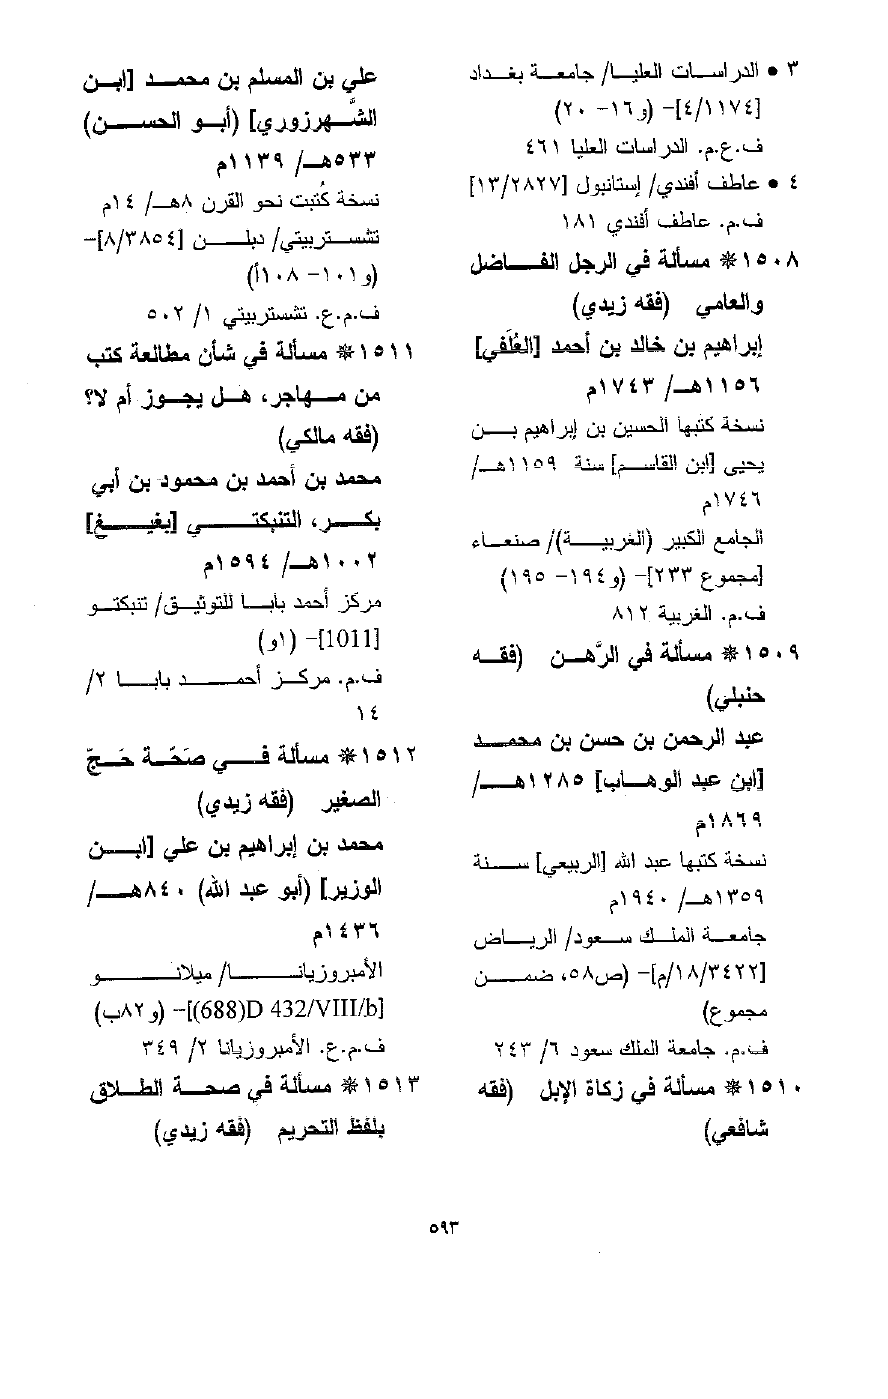 ٣ • الدراسات العليا/ جامعة بغداد
[٤/١١٧٤]- (و١٦- ٢٠)
ف.ع.م. الدراسات العليا ٤٦١
٤ • عاطف أفندي/ إستانبول [١٣/٢٨٢٧]
ف.م. عاطف أفندي ١٨١
١٥٠٨ * مسألة في الرجل الفاضل
والعامي (فقه زيدي)
إبراهيم بن خالد بن أحمد [العُلَفي]
١١٥٦هـ/ ١٧٤٣م
نسخة كتبها الحسين بن إبراهيم بن
يحيى [ابن القاسم] سنة ١١٥٩هـ/
١٧٤٦م
الجامع الكبير (الغربية)/ صنعاء
[مجموع ٢٣٣]- (و١٩٤- ١٩٥)
ف.م. الغربية ٨١٢
١٥٠٩ * مسألة في الرَّهن (فقه
حنبلي)
عبد الرحمن بن حسن بن محمد
[ابن عبد الوهاب] ١٢٨٥هـ/
١٨٦٩م
نسخة كتبها عبد الله [الربيعي] سنة
١٣٥٩هـ/ ١٩٤٠م
جامعة الملك سعود/ الرياض
[١٨/٣٤٢٢/م]- (ص٥٨، ضمن
مجموع)
ف.م. جامعة الملك سعود ٦/ ٢٤٣
١٥١٠ * مسألة في زكاة الإبل (فقه
شافعي)
علي بن المسلم بن محمد [ابن
الشَّهرزوري] (أبو الحسن)
٥٣٣هـ/ ١١٣٩م
نسخة كُتبت نحو القرن ٨هـ/ ١٤م
تشستربيتي/ دبلن [٨/٣٨٥٤]-
(و١٠١- ١٠٨أ)
ف.م.ع. تشستربيتي ١/ ٥٠٢
١٥١١ * مسألة في شأن مطالعة كتب
من مهاجر، هل يجوز أم لا؟
(فقه مالكي)
محمد بن أحمد بن محمود بن أبي
بكر، التنبكتي [بغيغ]
١٠٠٢هـ/ ١٥٩٤م
مركز أحمد بابا للتوثيق/ تنبكتو
[1011]- (١و)
ف.م. مركز أحمد بابا ٢/
١٤
١٥١٢ * مسألة في صَحّة حَجّ
الصغير (فقه زيدي)
محمد بن إبراهيم بن علي [ابن
الوزير] (أبو عبد الله) ٨٤٠هـ/
١٤٣٦م
الأمبروزيانا/ ميلانو
[D 432/VIII/b(688)]- (و٨٢ب)
ف.م.ع. الأمبروزيانا ٢/ ٣٤٩
١٥١٣ * مسألة في صحة الطلاق
بلفظ التحريم (فقه زيدي)
٥٩٣